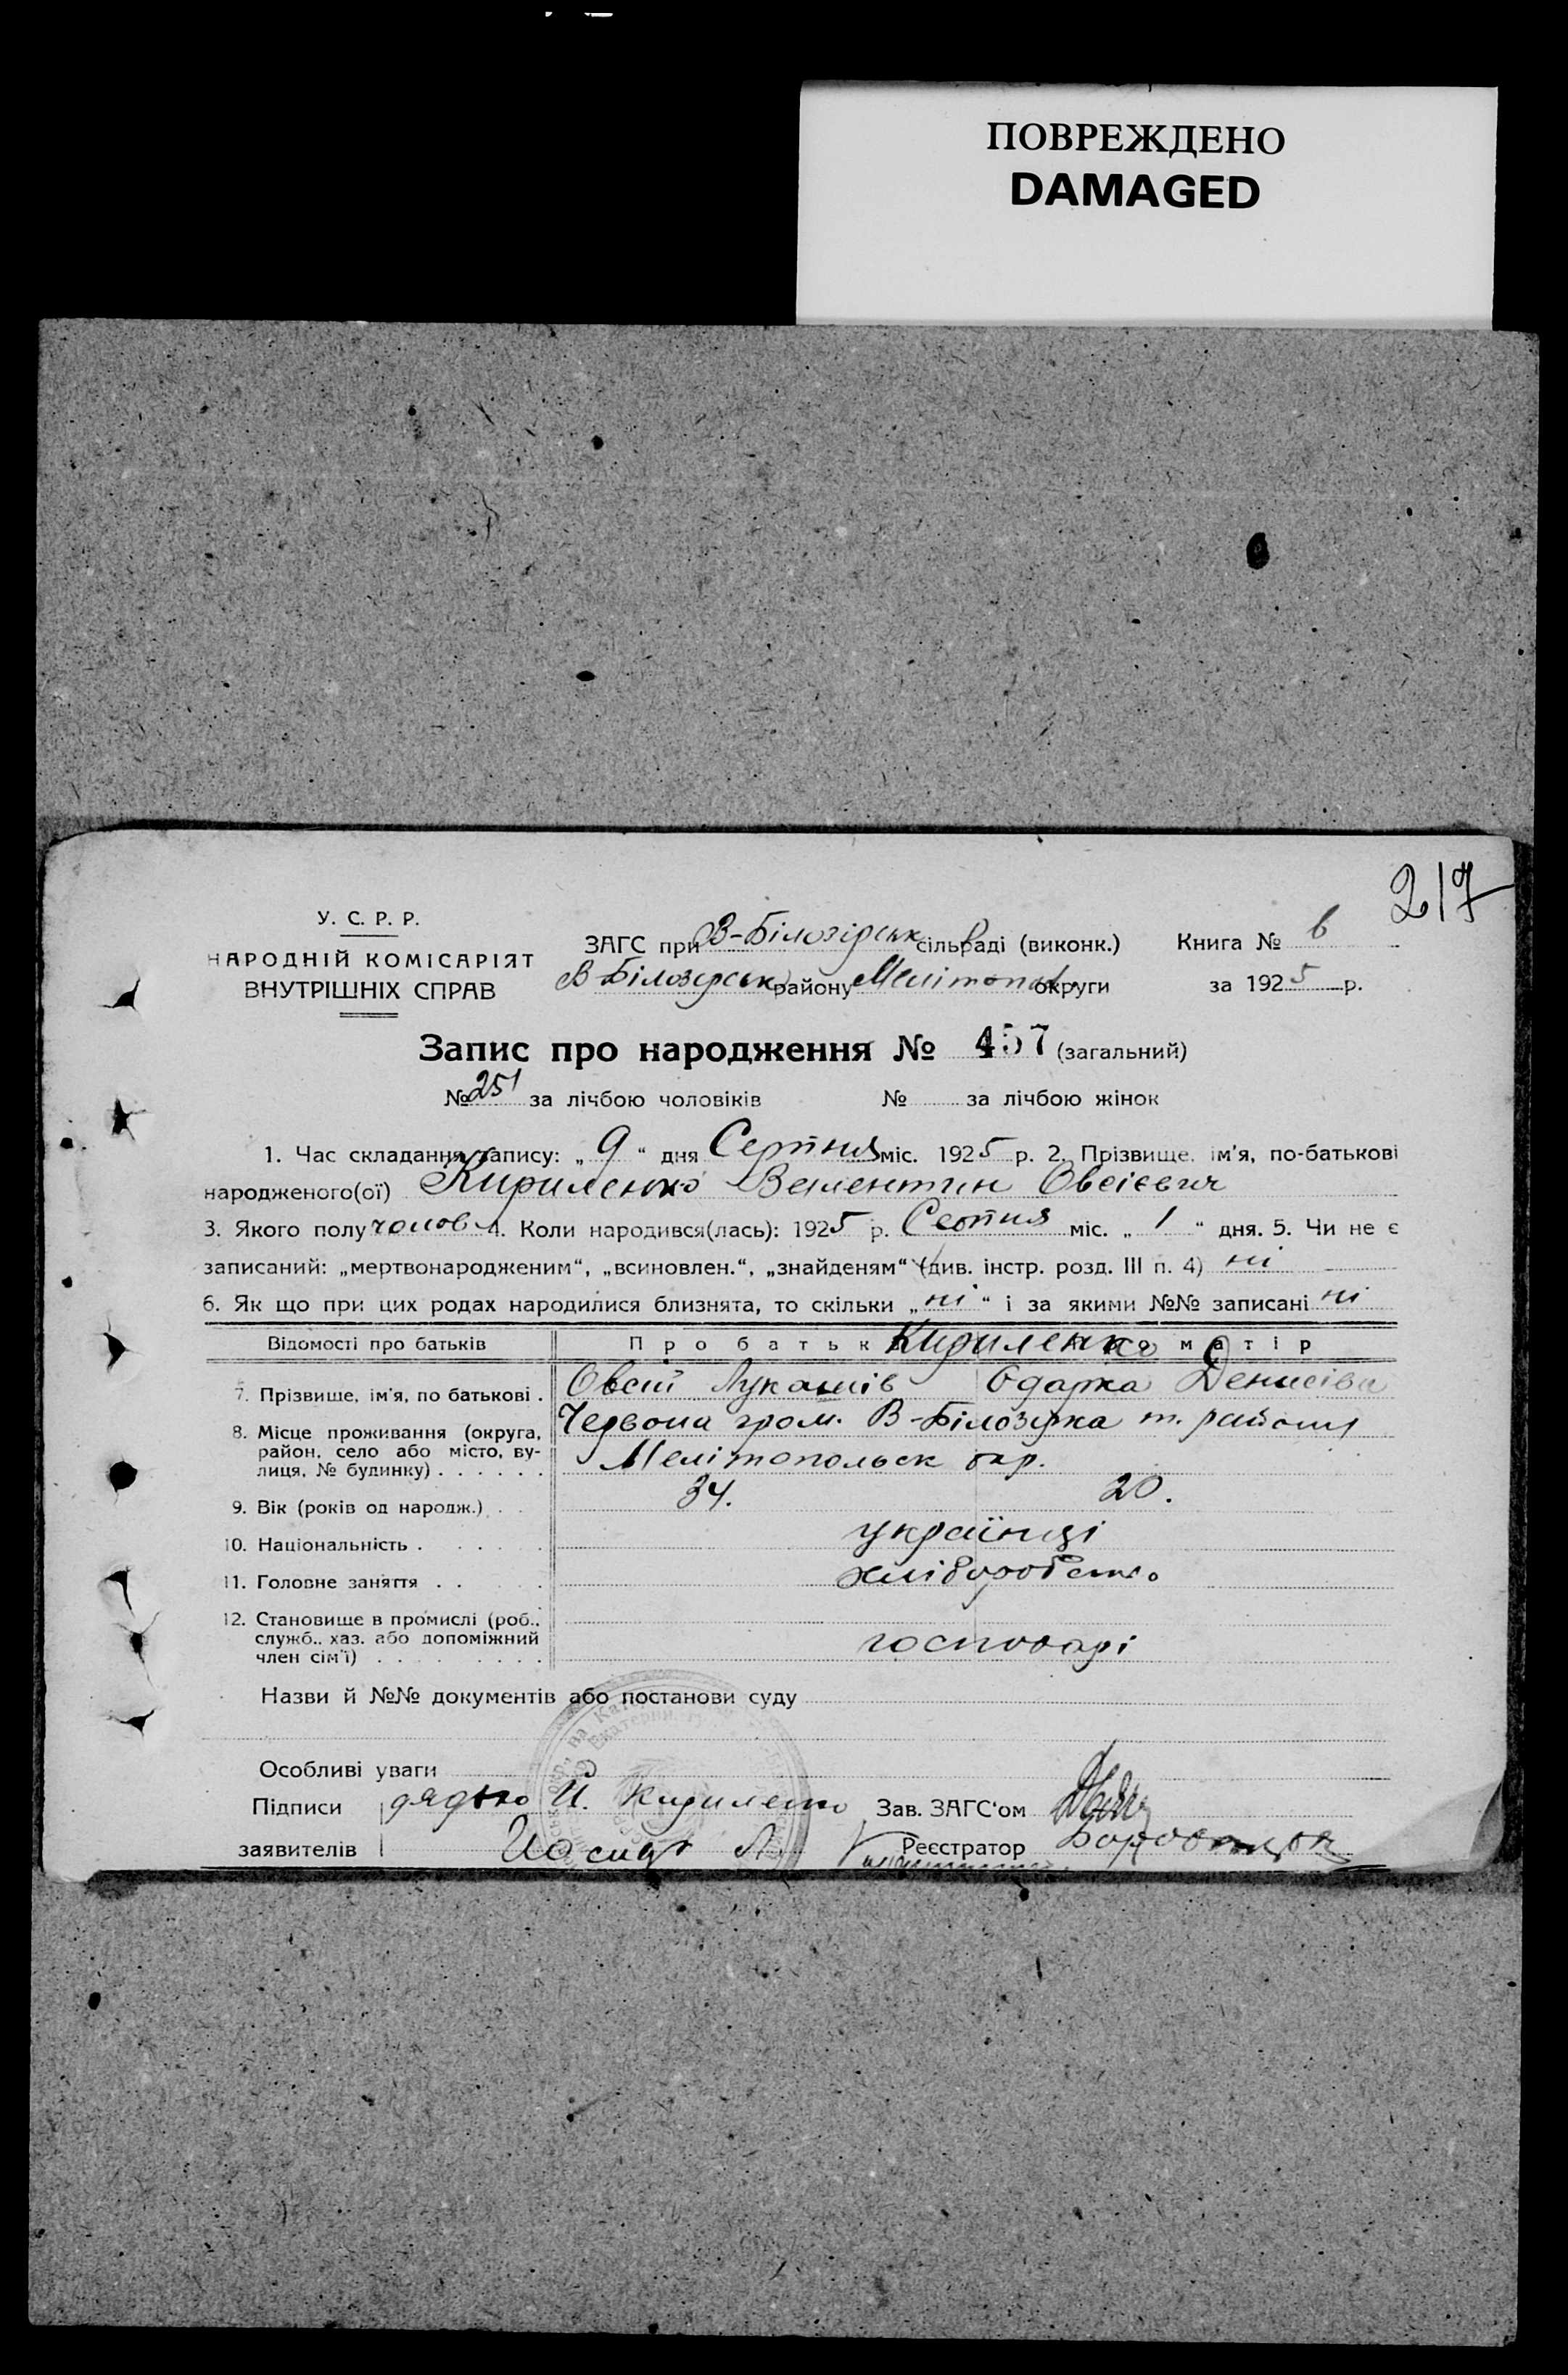 ПОВРЕЖДЕНО
DAMAGED
217
У. С. Р. Р.
НАРОДНІЙ КОМІСАРІЯТ
ВНУТРІШНІХ СПРАВ
ЗАГС при В-Білозірськ сільраді (виконк.) Книга № 6
В-Білозірськ району Мелітопол. округи за 1925 р.
Запис про народження № 457 (загальний)
№ 251 за лічбою чоловіків № за лічбою жінок
1. Час складання запису: „9“ дня Серпня міс. 1925 р. 2. Прізвище, ім'я, по-батькові
народженого(ої) Кириленко Велентин Овсієвич
3. Якого полу чолов 4. Коли народився(лась): 1925 р. Серпня міс. „1“ дня. 5. Чи не є
записаний: „мертвонародженим“, „всиновлен.“, „знайденям“ (див. інстр. розд. III п. 4) ні
6. Як що при цих родах народилися близнята, то скільки „ні“ і за якими №№ записані ні
Відомості про батьків Про батьк Кириленко матір
7. Прізвище, ім'я, по батькові . Овсій Лукашів Одарка Денисівна
8. Місце проживання (округа, Червона гром. В-Білозірка т. району
район, село або місто, ву-
лиця, № будинку) . . . . . . Мелітопольск окр.
9. Вік (років од народж.) . . 34. 20.
10. Національність . . . . . . українці
11. Головне заняття . . . . хліборобство
12. Становище в промислі (роб.,
служб., хаз. або допоміжний господарі
член сім'ї) . . . . . . . . .
Назви й №№ документів або постанови суду
Особливі уваги
Підписи дядько Й. Кириленко Зав. ЗАГС'ом
заявителів Реєстратор